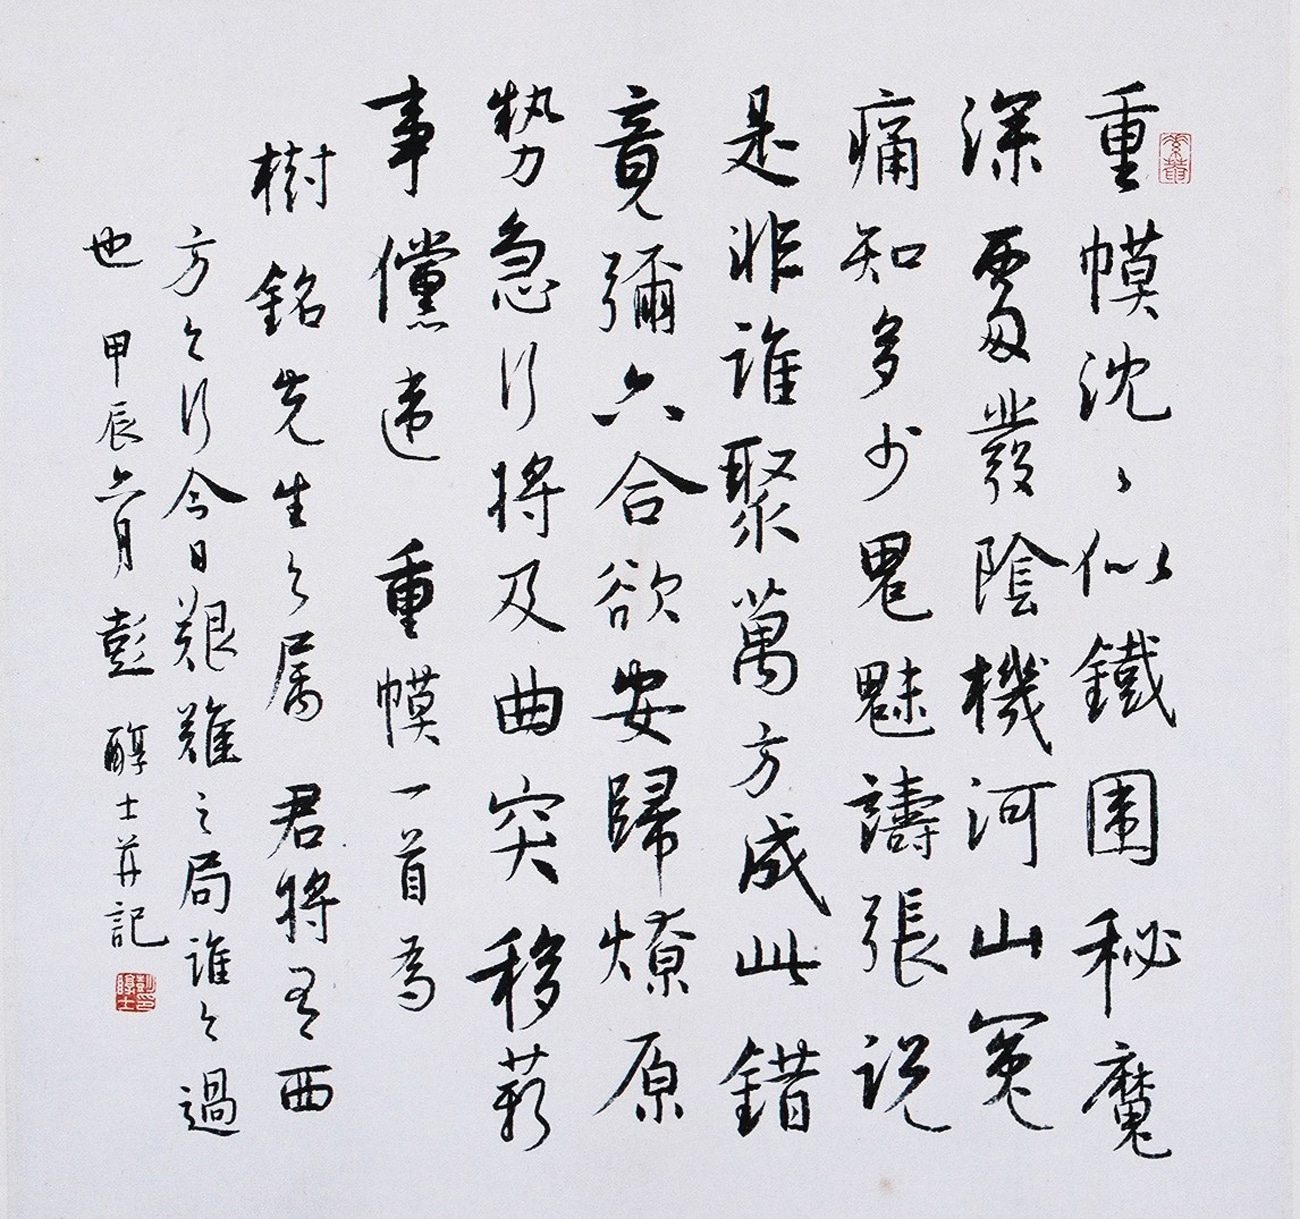 重幙沈〻似鐵圍秘魔
深處發陰機河山冤
痛知多少鬼魅譸張說
是非誰聚萬方成此錯
竟彌六合欲安歸燎原
勢急行將及曲突移薪
事儻違 重幙一首為
樹銘先生之屬 君將有西
方之行今日艱難之局誰之過
也 甲辰六月 彭醇士并記
彭醇士印